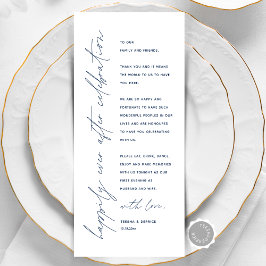 happily ever after celebration
TO OUR
FAMILY AND FRIENDS,
THANK YOU AND IT MEANS
THE WORLD TO US TO HAVE
YOU HERE.
WE ARE SO HAPPY AND
FORTUNATE TO HAVE SUCH
WONDERFUL PEOPLES IN OUR
LIVES AND ARE HONOURED
TO HAVE YOU CELEBRATING
WITH US.
PLEASE EAT, DRINK, DANCE,
ENJOY AND MAKE MEMORIES
WITH US TONIGHT AS OUR
FIRST EVENING AS
HUSBAND AND WIFE.
with love,
& DERRICK